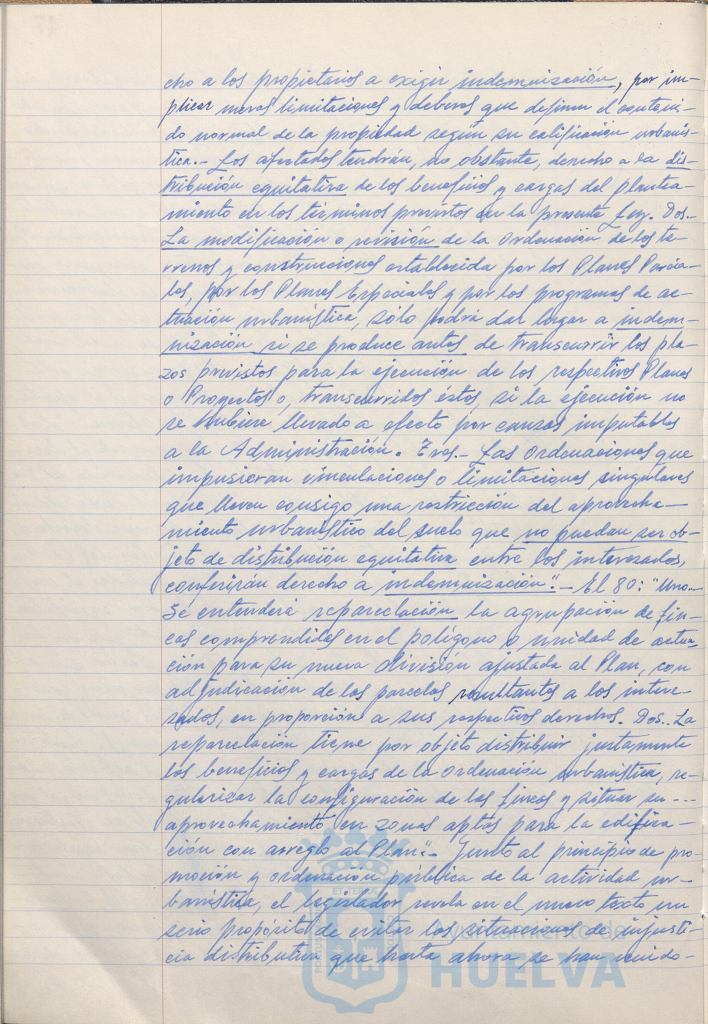 cho a los propietarios a exigir indemnización, por im-
plicar meras limitaciones y deberes que definen el conteni-
do normal de la propiedad según su calificación urbanís-
tica.- Los afectados tendrán, no obstante, derecho a la dis-
tribución equitativa de los beneficios y cargas del plantea-
miento en los términos previstos en la presente Ley. Dos.-
La modificación o revisión de la ordenación de los te-
rrenos y construcciones establecida por los Planes Parcia-
les, por los Planes Especiales y por los programas de ac-
tuación urbanística, sólo podrá dar lugar a indem-
nización si se produce antes de transcurrir los pla-
zos previstos para la ejecución de los respectivos Planes
o Proyectos o, transcurridos éstos, si la ejecución no
se hubiere llevado a efecto por causas imputables
a la Administración. Tres.- Las ordenaciones que
impusieran vinculaciones o limitaciones singulares
que lleven consigo una restricción del aprovecha-
miento urbanístico del suelo que no puedan ser ob-
jeto de distribución equitativa entre los interesados,
conferirán derecho a indemnización".- El 80: "Uno.-
Se entenderá reparcelación la agrupación de fin-
cas comprendidas en el polígono o unidad de actua-
ción para su nueva división ajustada al Plan, con
adjudicación de las parcelas resultantes a los intere-
sados, en proporción a sus respectivos derechos. Dos.- La
reparcelación tiene por objeto distribuir justamente
los beneficios y cargas de la ordenación urbanística, re-
gularizar la configuración de las fincas y situar su ---
aprovechamiento en zonas aptas para la edifica-
ción con arreglo al Plan".- Junto al principio de pro-
moción y ordenación pública de la actividad ur-
banística, el legislador revela en el nuevo texto un
serio propósito de evitar las situaciones de injusti-
cia distributiva que hasta ahora se han venido-
Ayuntamiento de
HUELVA